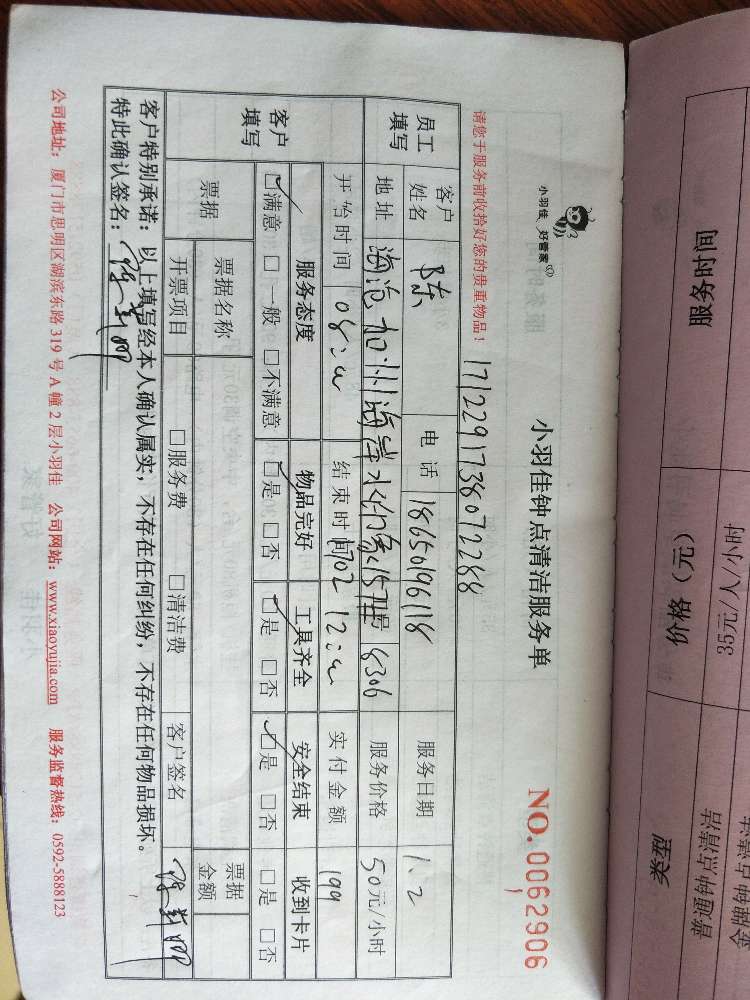 小羽佳 好管家
小羽佳钟点清洁服务单
NO. 0062906
请您于服务前收拾好您的贵重物品！
1712291738072288
员工填写 客户姓名 陈 电话 18650196118 服务日期 1.2
地址 服务价格 50元/小时
开始时间 08: 结束时间 12: 实付金额 199
客户填写 服务态度 物品完好 工具齐全 安全结束 收到卡片
☑满意 □一般 □不满意 ☑是 □否 ☑是 □否 ☑是 □否 □是 □否
票据 票据名称 票据金额
开票项目 □服务费 □清洁费 客户签名
客户特别承诺：以上填写经本人确认属实，不存在任何纠纷，不存在任何物品损坏。
特此确认签名：
公司地址：厦门市思明区湖滨东路 319 号 A 幢 2 层小羽佳 公司网站：www.xiaoyujia.com 服务监督热线：0592-5888123
服务时间 价格（元） 类型
35元/人/小时 普通钟点清洁